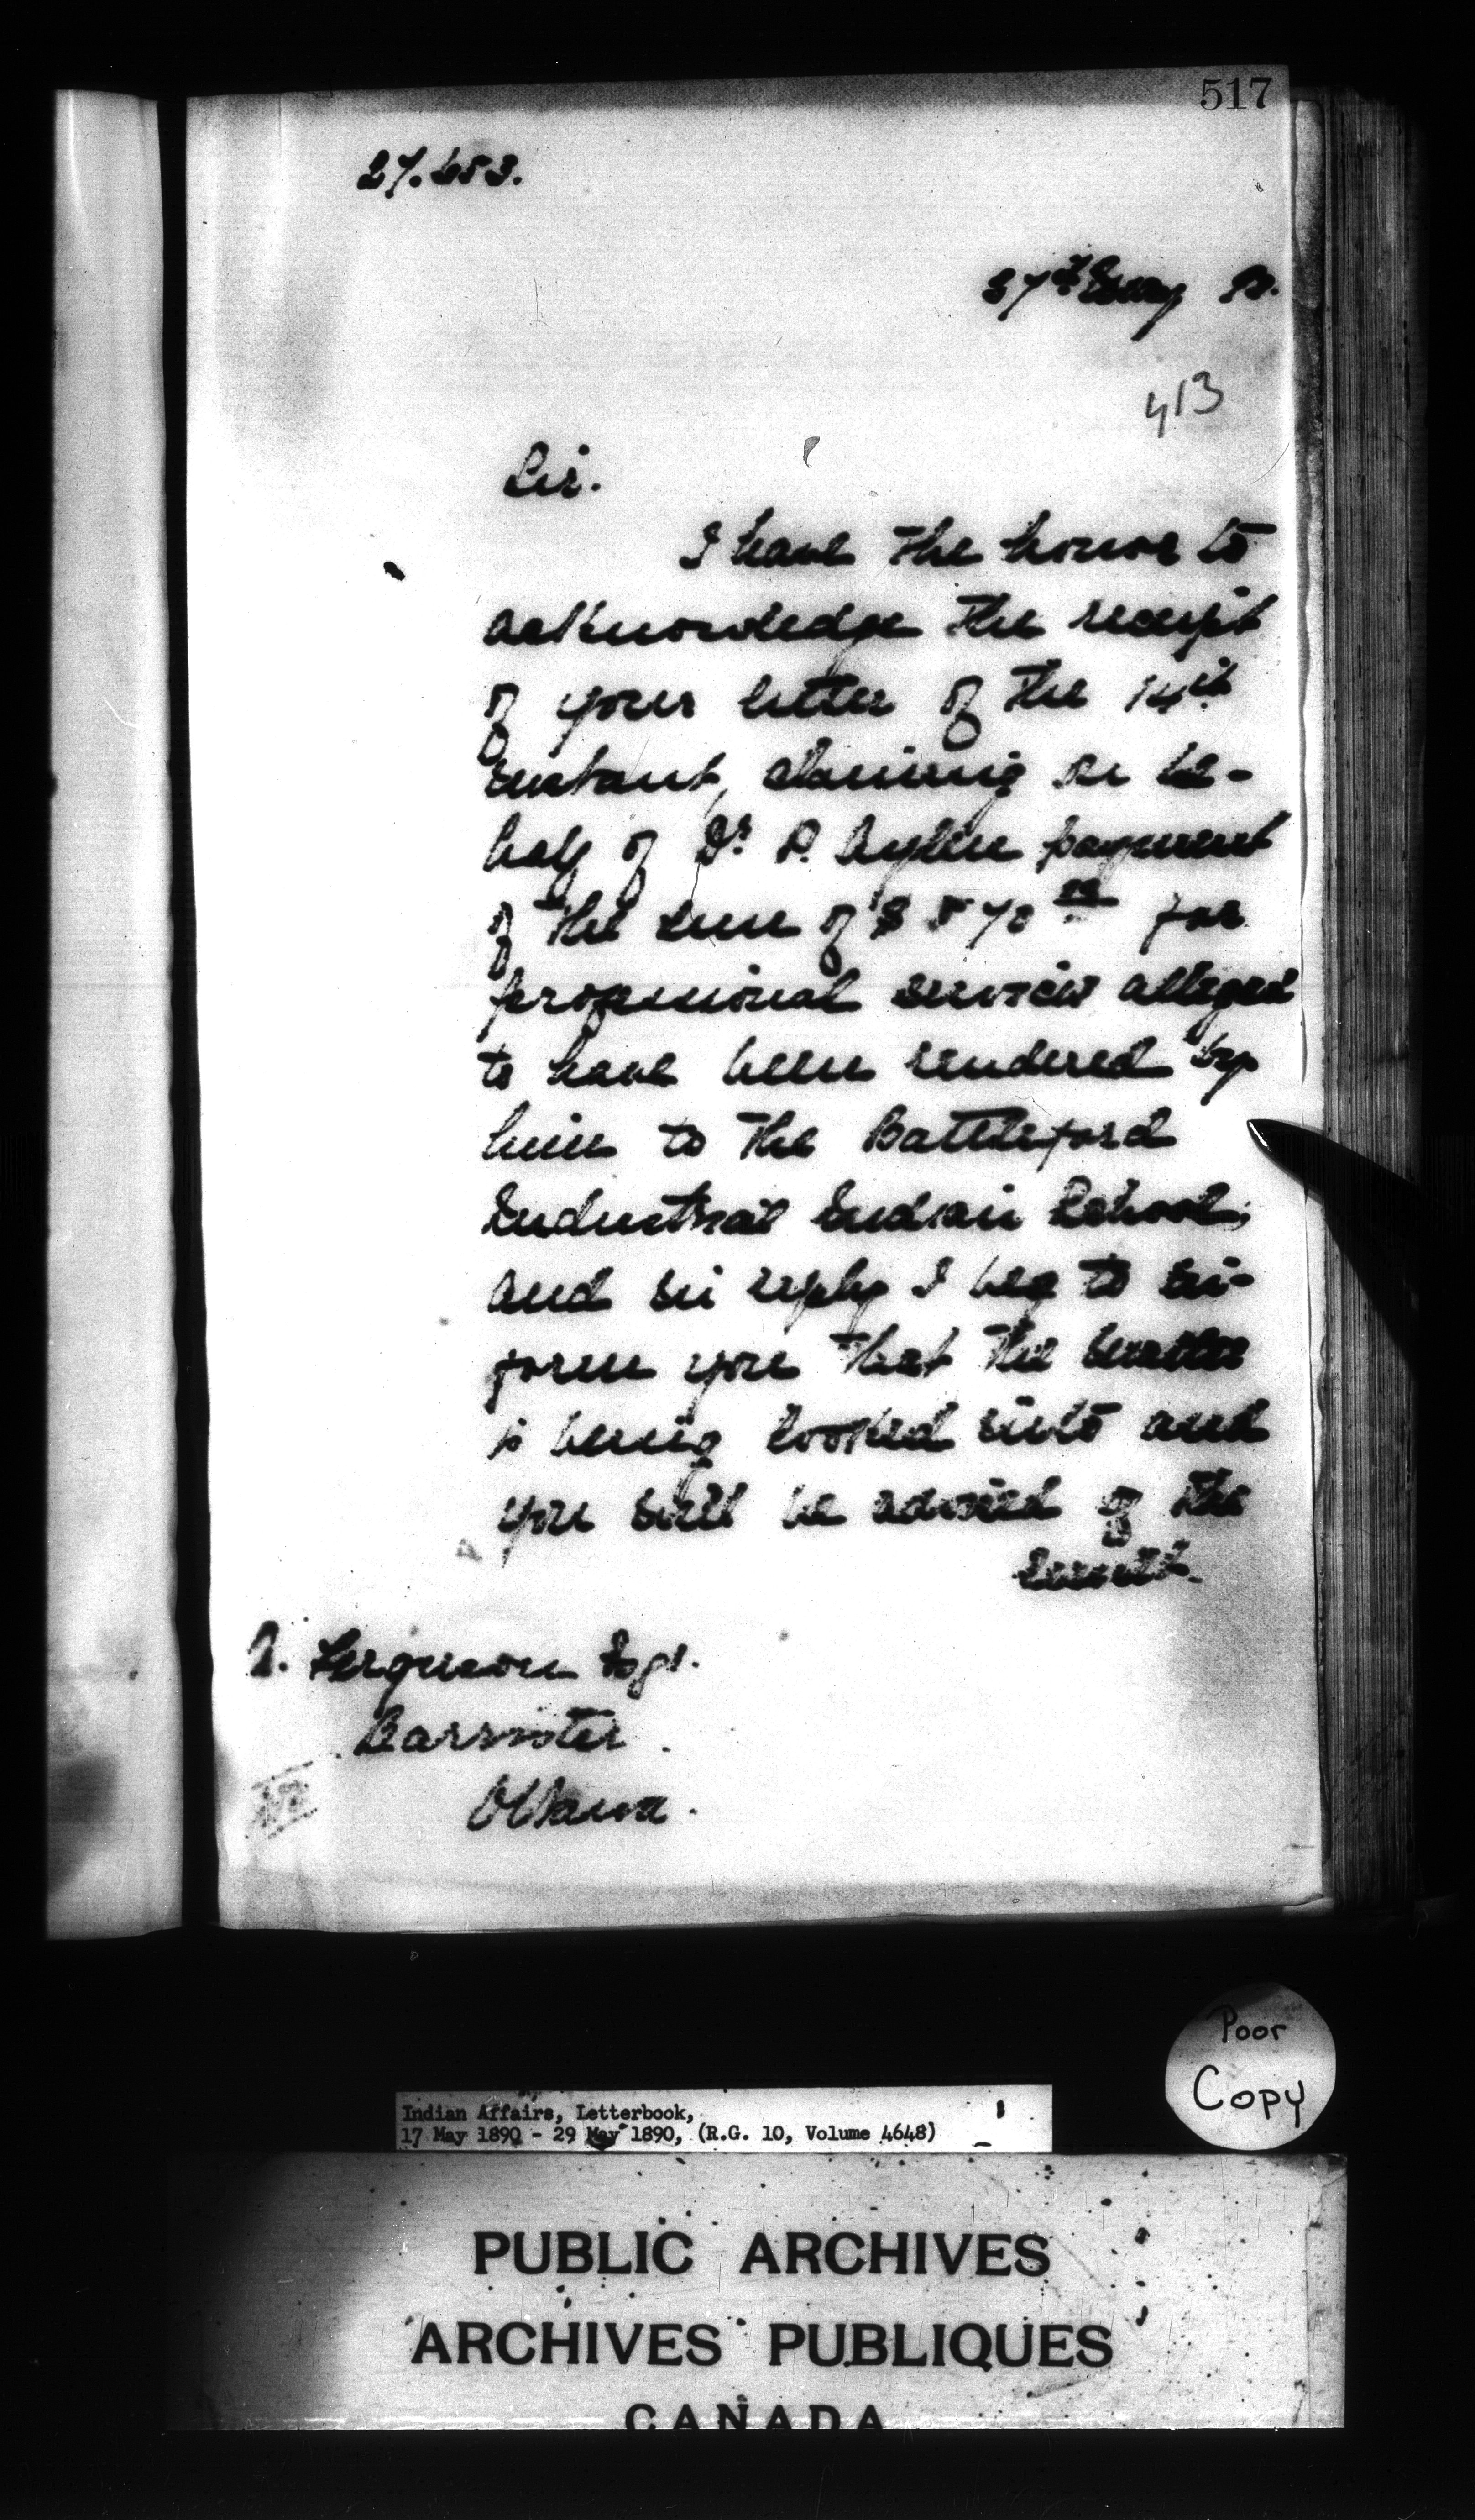 517
27.653.
27th May 90.
413
Sir.
I have the honor to
acknowledge the receipt
of your letter of the 14th
instant, claiming on be-
half of Dr. P. Aylen payment
of the sum of $ 570 00 for
professional services alleged
to have been rendered by
him to the Battleford
Industrial Indian School,
and in reply I beg to in-
form you that the matter
is being looked into and
you will be advised of the
result.
A. Ferguson Esqr.
Barrister.
Ottawa.
Poor
Copy
Indian Affairs, Letterbook,
17 May 1890 - 29 May 1890, (R.G. 10, Volume 4648)
PUBLIC ARCHIVES
ARCHIVES PUBLIQUES
CANADA